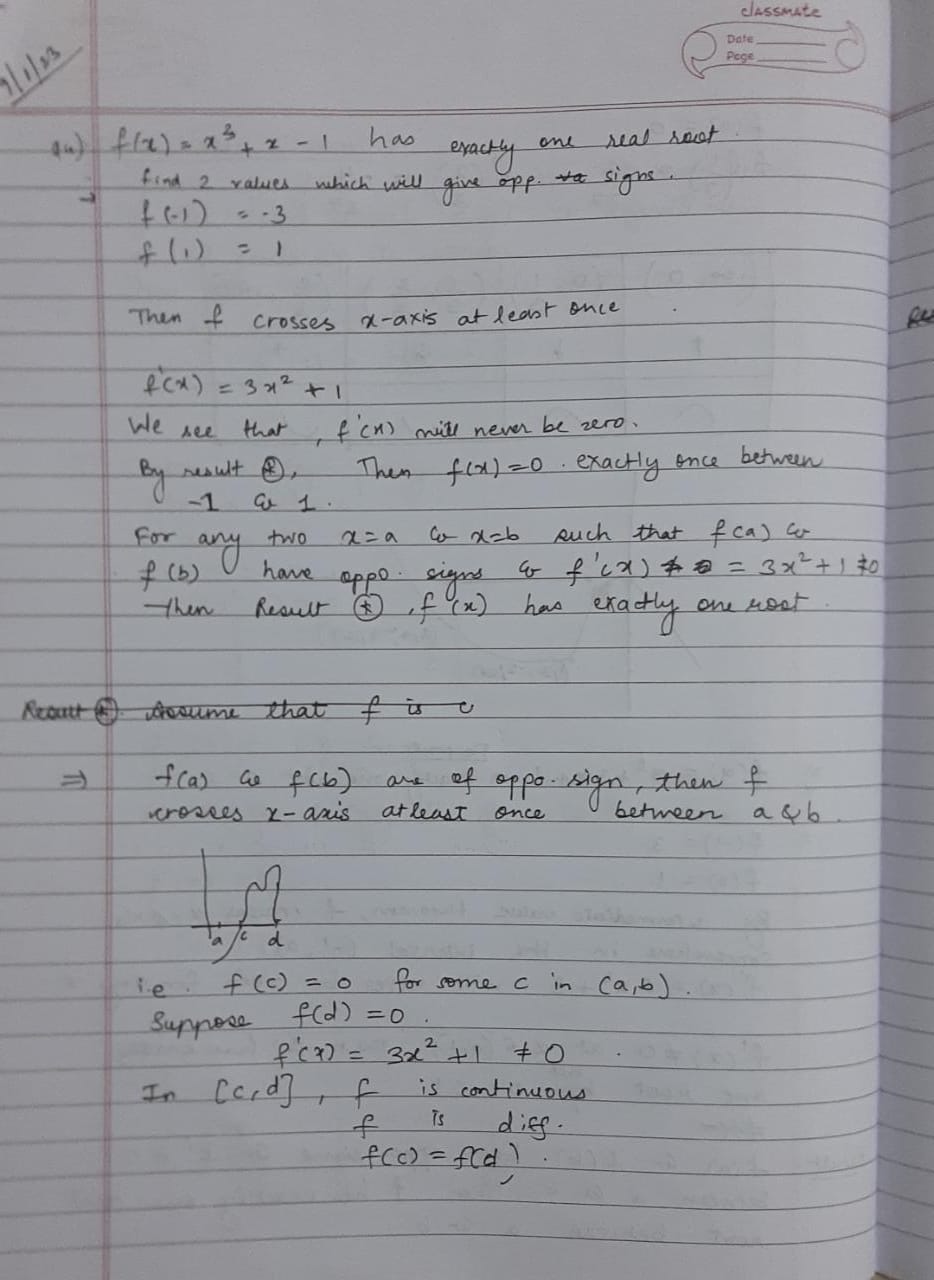 classmate
Date
Page
9/1/23
Qu) f(x) = x³ + x - 1 has exactly one real root.
find 2 values which will give opp. signs.
→ f(-1) = -3
f(1) = 1
Then f crosses x-axis at least once
f'(x) = 3x² + 1
We see that, f'(x) will never be zero.
By result ⊛, Then f(x) = 0. exactly once between
-1 & 1.
For any two x=a & x=b such that f(a) &
f(b) have oppo. signs & f'(x) = 3x²+1 ≠0
Then Result ⊛, f'(x) has exactly one root.
Result ⊛. Assume that f is c
⇒ f(a) & f(b) are of oppo. sign, then f
crosses x-axis atleast once between a & b.
a c d
i.e. f(c) = 0 for some c in (a,b).
Suppose f(d) = 0.
f'(x) = 3x² + 1 ≠ 0.
In [c,d], f is continuous
f is diff.
f(c) = f(d).